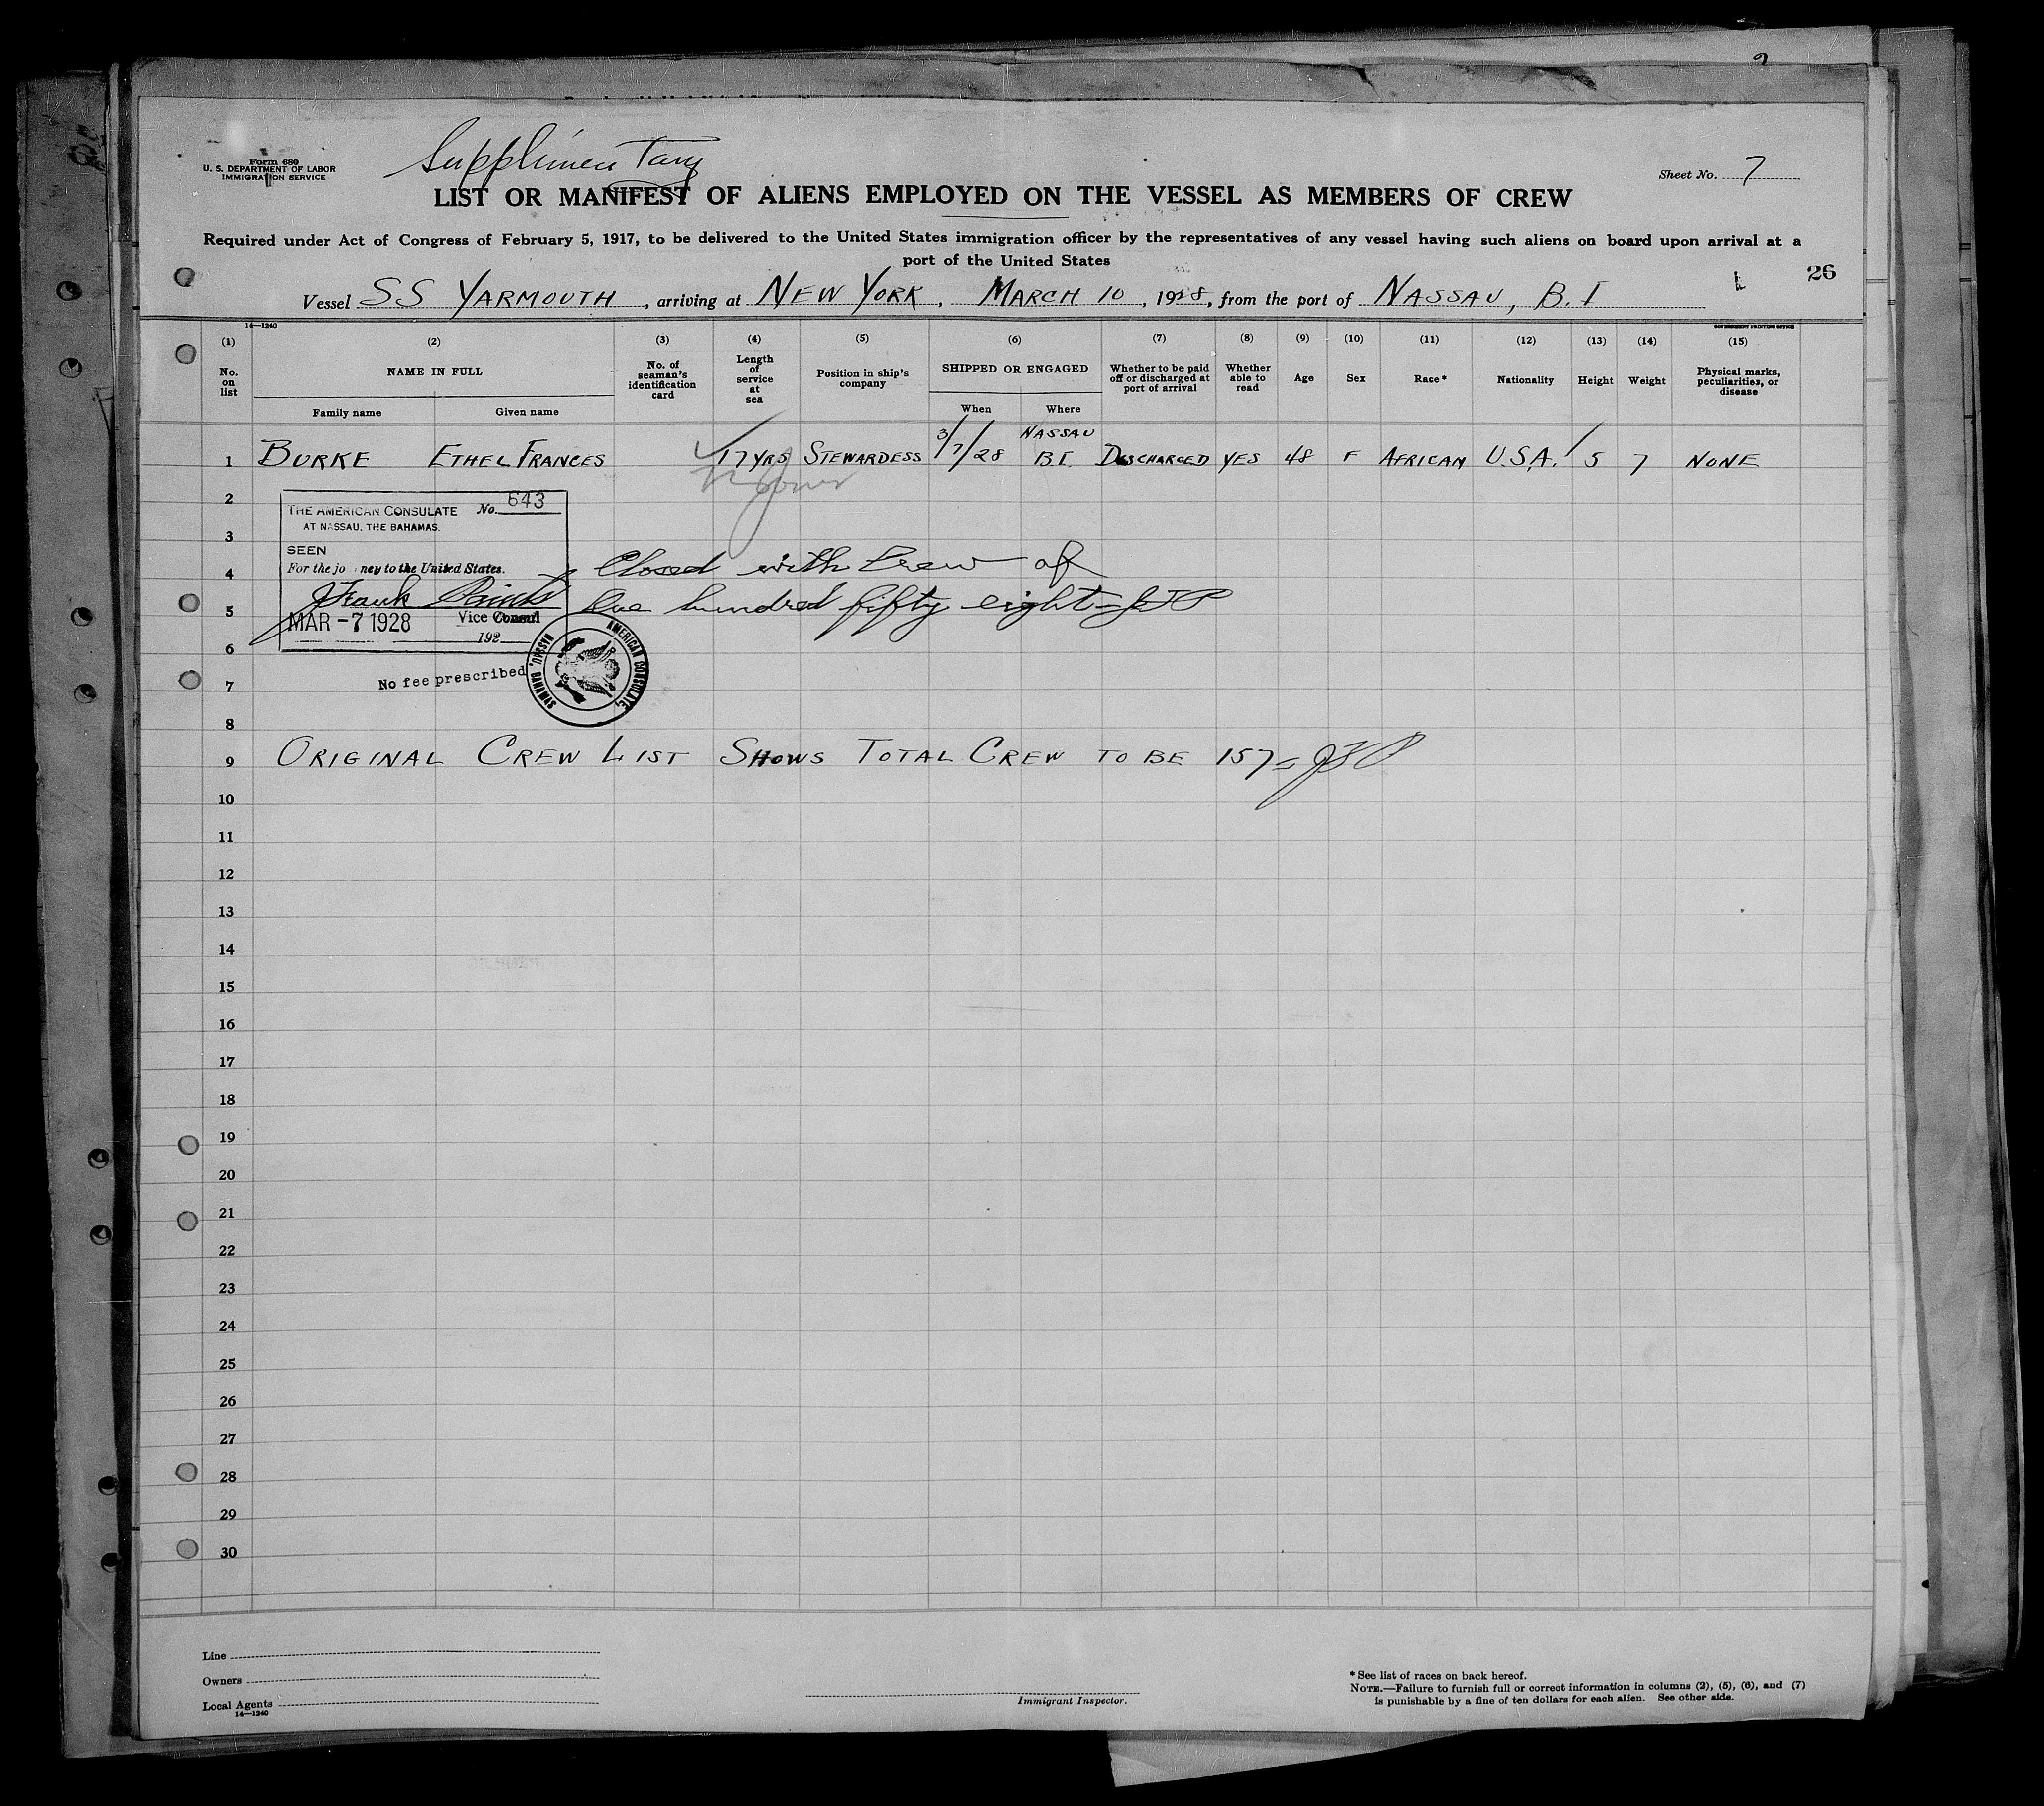 Form 680
U. S. DEPARTMENT OF LABOR
IMMIGRATION SERVICE
Supplimentary
Sheet No. 7
LIST OR MANIFEST OF ALIENS EMPLOYED ON THE VESSEL AS MEMBERS OF CREW
Required under Act of Congress of February 5, 1917, to be delivered to the United States immigration officer by the representatives of any vessel having such aliens on board upon arrival at a
port of the United States
26
Vessel SS YARMOUTH, arriving at NEW YORK, MARCH 10, 1928, from the port of NASSAU, B.I
14—1240
GOVERNMENT PRINTING OFFICE
(1) (2) (3) (4) (5) (6) (7) (8) (9) (10) (11) (12) (13) (14) (15)
No. on list
NAME IN FULL
Family name
Given name
No. of seaman's identification card
Length of service at sea
Position in ship's company
SHIPPED OR ENGAGED
When
Where
Whether to be paid off or discharged at port of arrival
Whether able to read
Age
Sex
Race*
Nationality
Height
Weight
Physical marks, peculiarities, or disease
1 BURKE ETHEL FRANCES 17 YRS STEWARDESS 3/7/28 NASSAU B.I. DISCHARGED YES 48 F AFRICAN U.S.A. 5 7 NONE
2
THE AMERICAN CONSULATE No. 643
AT NASSAU, THE BAHAMAS.
3
SEEN
For the jo ney to the United States.
4
Closed with Crew of
J Frank
5
One hundred fifty eight= JFP
MAR -7 1928 Vice Consul
192
6
NASSAU, BAHAMAS AMERICAN CONSULATE,
No fee prescribed
7
8
9 ORIGINAL CREW LIST SHOWS TOTAL CREW TO BE 157= JFP
10
11
12
13
14
15
16
17
18
19
20
21
22
23
24
25
26
27
28
29
30
Line
Owners
Local Agents
14—1240
Immigrant Inspector.
* See list of races on back hereof.
NOTE.—Failure to furnish full or correct information in columns (2), (5), (6), and (7)
is punishable by a fine of ten dollars for each alien. See other side.